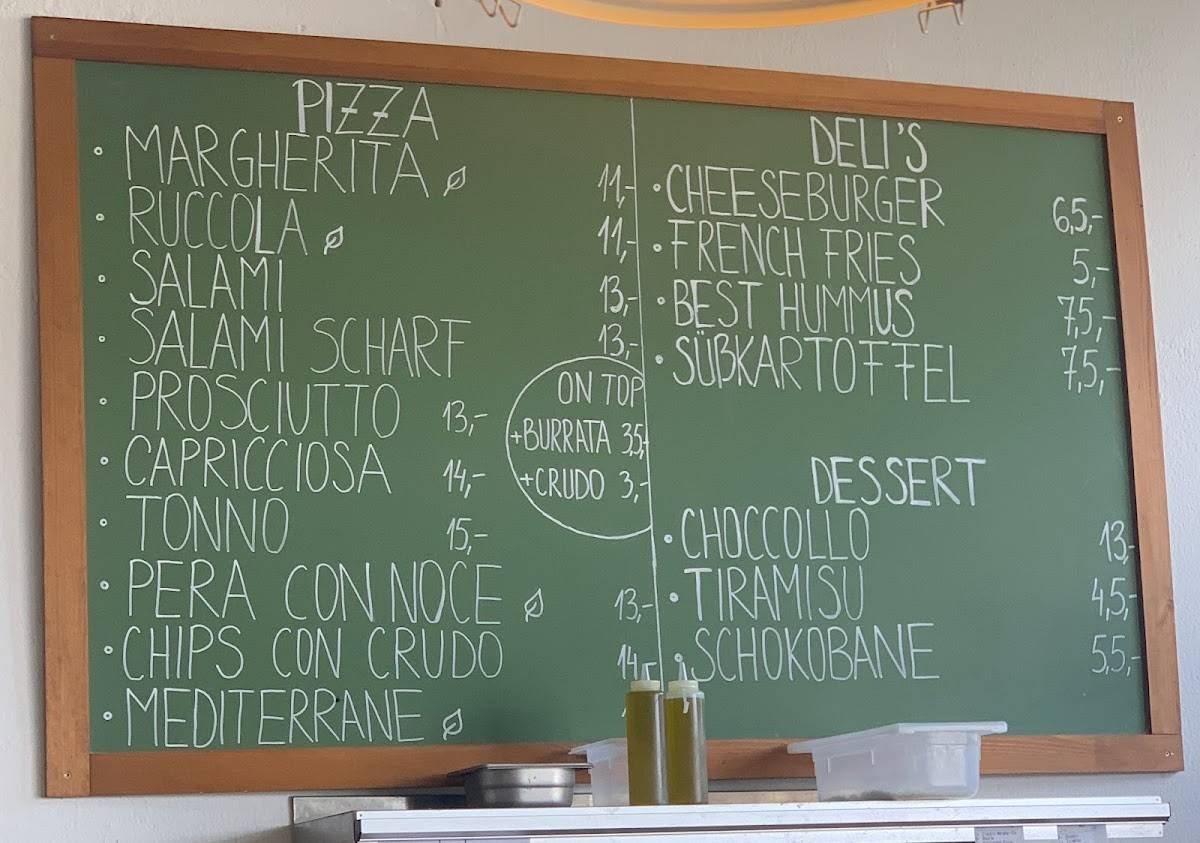 PIZZA
• MARGHERITA 11,-
• RUCCOLA 11,-
• SALAMI 13,-
• SALAMI SCHARF 13,-
• PROSCIUTTO 13,-
• CAPRICCIOSA 14,-
• TONNO 15,-
• PERA CON NOCE 13,-
• CHIPS CON CRUDO 14
• MEDITERRANE
ON TOP
+BURRATA 3,5,-
+CRUDO 3,-
DELI'S
• CHEESEBURGER 6,5,-
• FRENCH FRIES 5,-
• BEST HUMMUS 7,5,-
• SÜßKARTOFFEL 7,5,-
DESSERT
• CHOCCOLLO 13,-
• TIRAMISU 4,5,-
• SCHOKOBANE 5,5,-